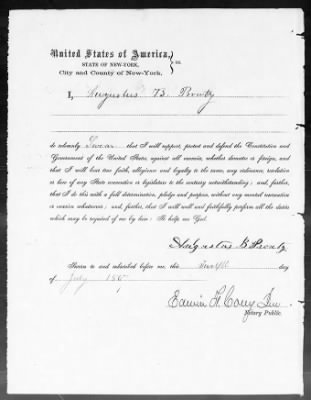 United States of America,
STATE OF NEW-YORK, } ss.
City and County of New-York.
I, Augustus B. Prouty
do solemnly Swear that I will support, protect and defend the Constitution and
Government of the United States, against all enemies, whether domestic or foreign, and
that I will bear true faith, allegiance and loyalty to the same, any ordinance, resolution
or law of any State convention or legislature to the contrary notwithstanding; and further,
that I do this with a full determination, pledge and purpose, without any mental reservation
or evasion whatsoever; and, further, that I will well and faithfully perform all the duties
which may be required of me by law: So help me God.
Augustus B Prouty
Sworn to and subscribed before me, this Twelfth day
of July
Edwin F. Corey Jun
Notary Public.